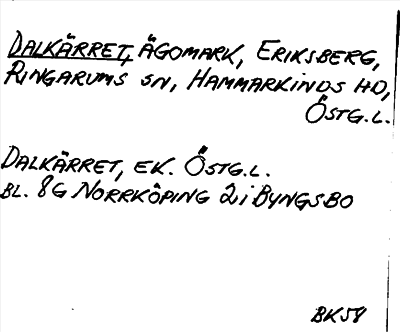 DALKÄRRET, ÄGOMARK, ERIKSBERG,
RINGARUMS SN, HAMMARKINDS HD,
ÖSTG.L.
DALKÄRRET, EK. ÖSTG.L.
BL. 8G NORRKÖPING 2i BYNGSBO
BK58